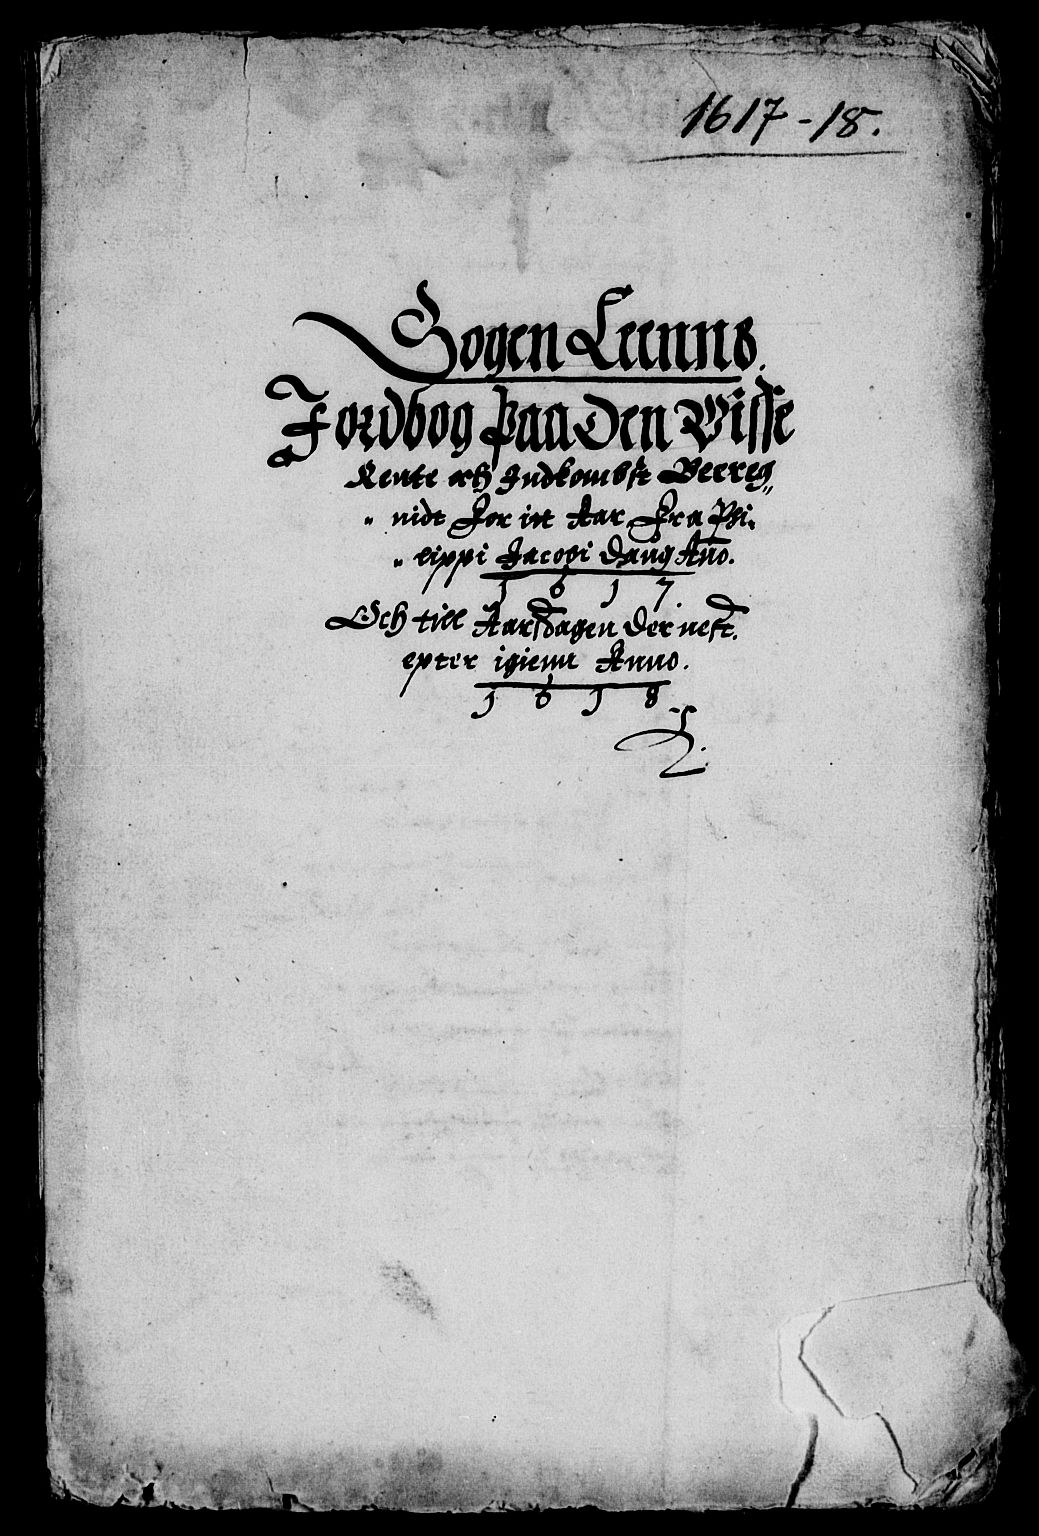 1617-18.
Sogen Leenns.
Jordbog paa Den Visse
Rente och Indkombst Beereg„
„ nidt For itt Aar Fra Phi„
„ lippi Jacobi Daug Año.
1 6 1 7.
Och till Aarsdagen Der nest.
epter igienn Anno.
1 6 1 8